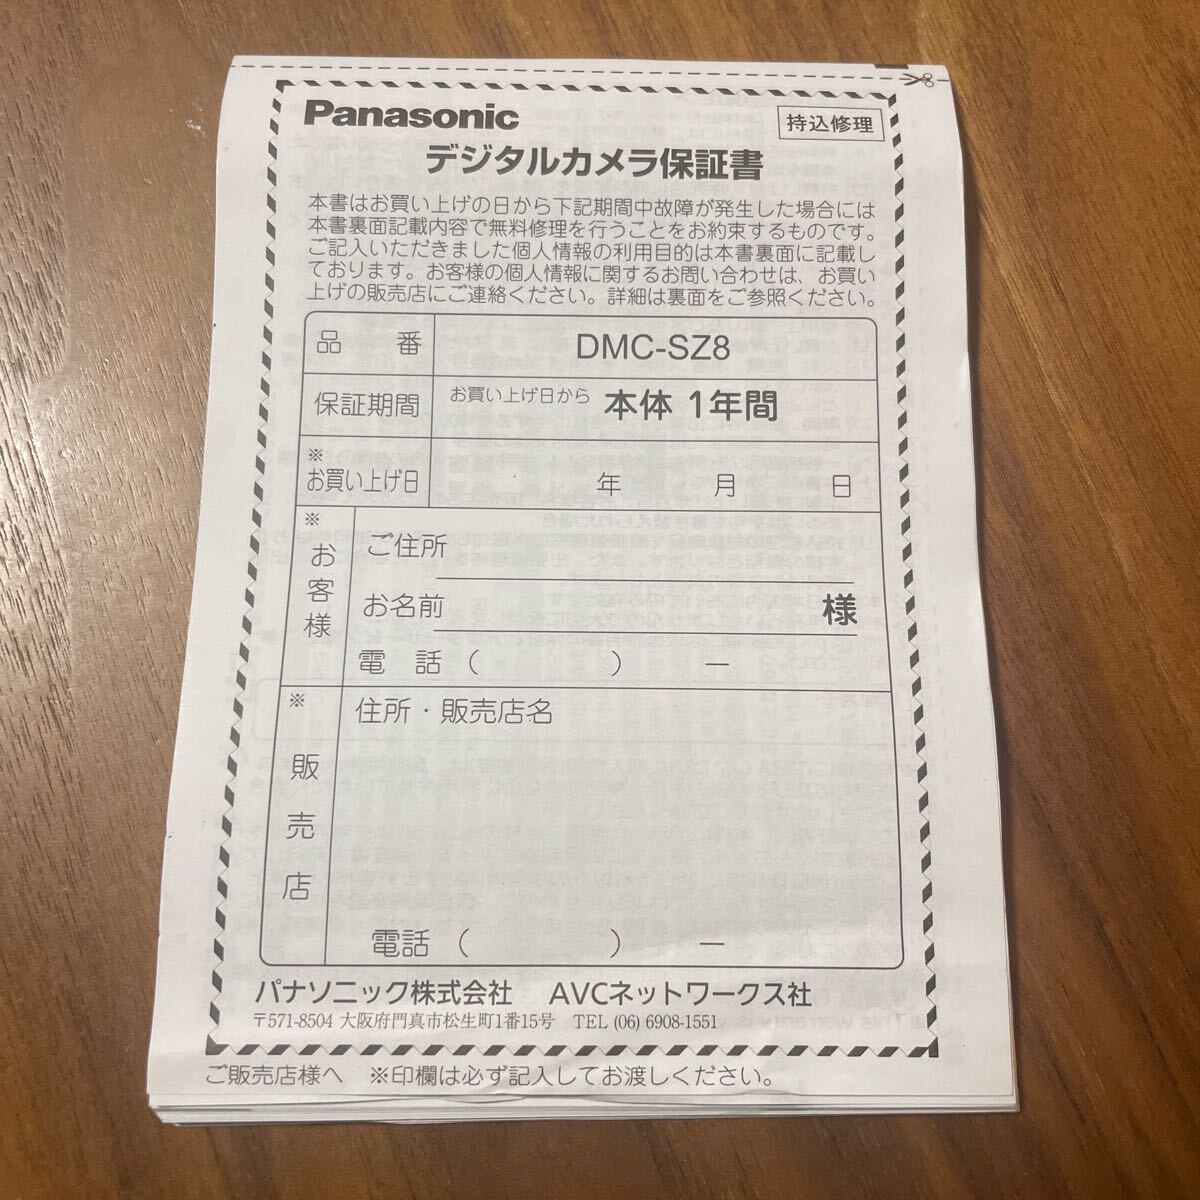 Panasonic
持込修理
デジタルカメラ保証書
本書はお買い上げの日から下記期間中故障が発生した場合には
本書裏面記載内容で無料修理を行うことをお約束するものです。
ご記入いただきました個人情報の利用目的は本書裏面に記載し
ております。お客様の個人情報に関するお問い合わせは、お買い
上げの販売店にご連絡ください。詳細は裏面をご参照ください。
品 番 DMC-SZ8
保証期間 お買い上げ日から 本体 1年間
※お買い上げ日 年 月 日
※お客様
ご住所
お名前 様
電 話 ( ) ー
※販売店
住所・販売店名
電話 ( ) ー
パナソニック株式会社 AVCネットワークス社
〒571-8504 大阪府門真市松生町1番15号 TEL (06) 6908-1551
ご販売店様へ ※印欄は必ず記入してお渡しください。